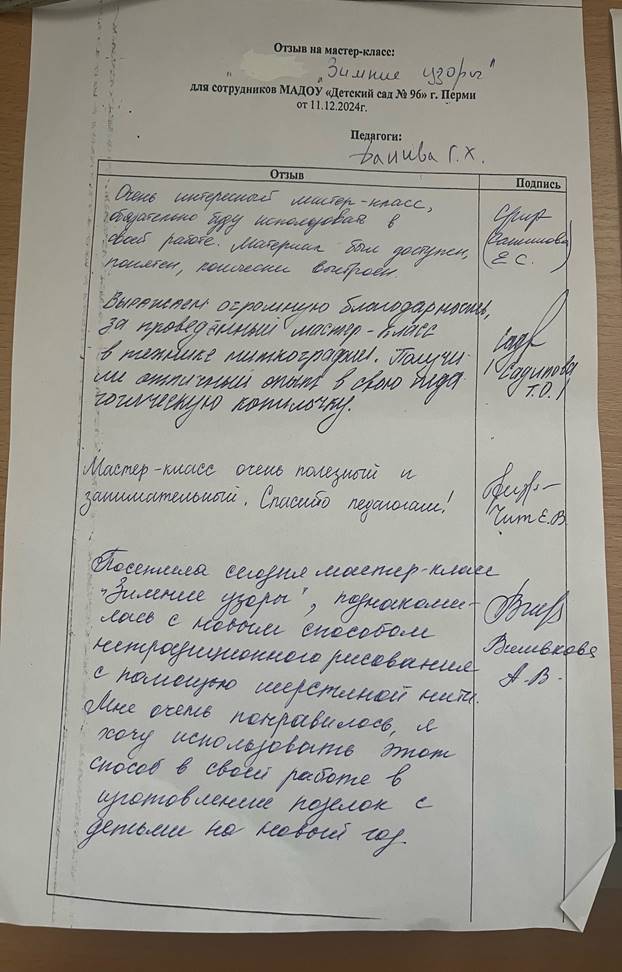 Отзыв на мастер-класс:
"Зимние узоры"
для сотрудников МАДОУ «Детский сад № 96» г. Перми
от 11.12.2024г.
Педагоги:
Г.Х.
Отзыв
Подпись
Очень интересный мастер-класс,
обязательно буду использовать в
своей работе. Материал был доступен,
понятен, поэтапно выстроен.
Е.С.
Выражаем огромную благодарность,
за проведённый мастер-класс
в технике ниткографии. Получи-
ли отличный опыт в свою педа-
гогическую копилочку.
Садыкова
Т.О.
Мастер-класс очень полезный и
занимательный. Спасибо педагогам!
Чит Е.В.
Посетила сегодня мастер-класс
"Зимние узоры", познакоми-
лась с новым способом
нетрадиционного рисования
с помощью шерстяной нити.
Мне очень понравилось, я
хочу использовать этот
способ в своей работе в
изготовлении поделок с
детьми на новый год.
А.В.